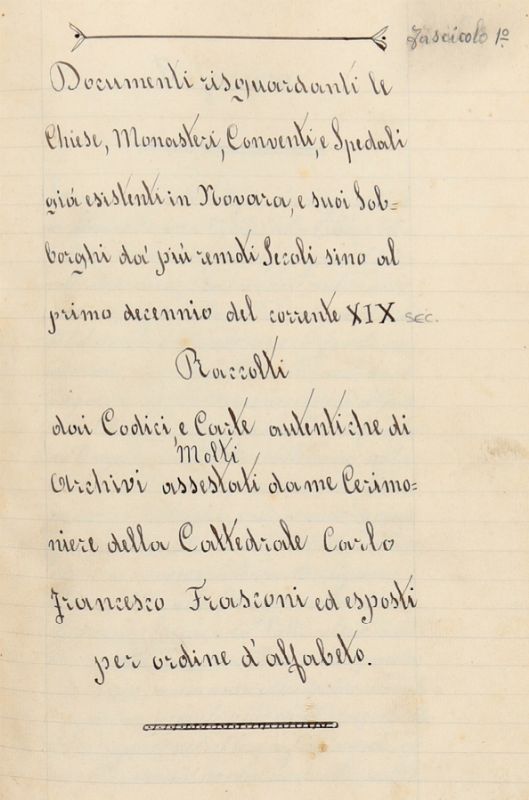 Fascicolo 1º
Documenti risguardanti le
Chiese, Monasteri, Conventi, e Spedali
già esistenti in Novara, e suoi Sob=
borghi da' più remoti Secoli sino al
primo decennio del corrente XIX sec.
Raccolti
dai Codici, e Carte autentiche di
Molti
Archivi assestati da me Cerimo=
niere della Cattedrale Carlo
Francesco Frasconi ed esposti
per ordine d'alfabeto.